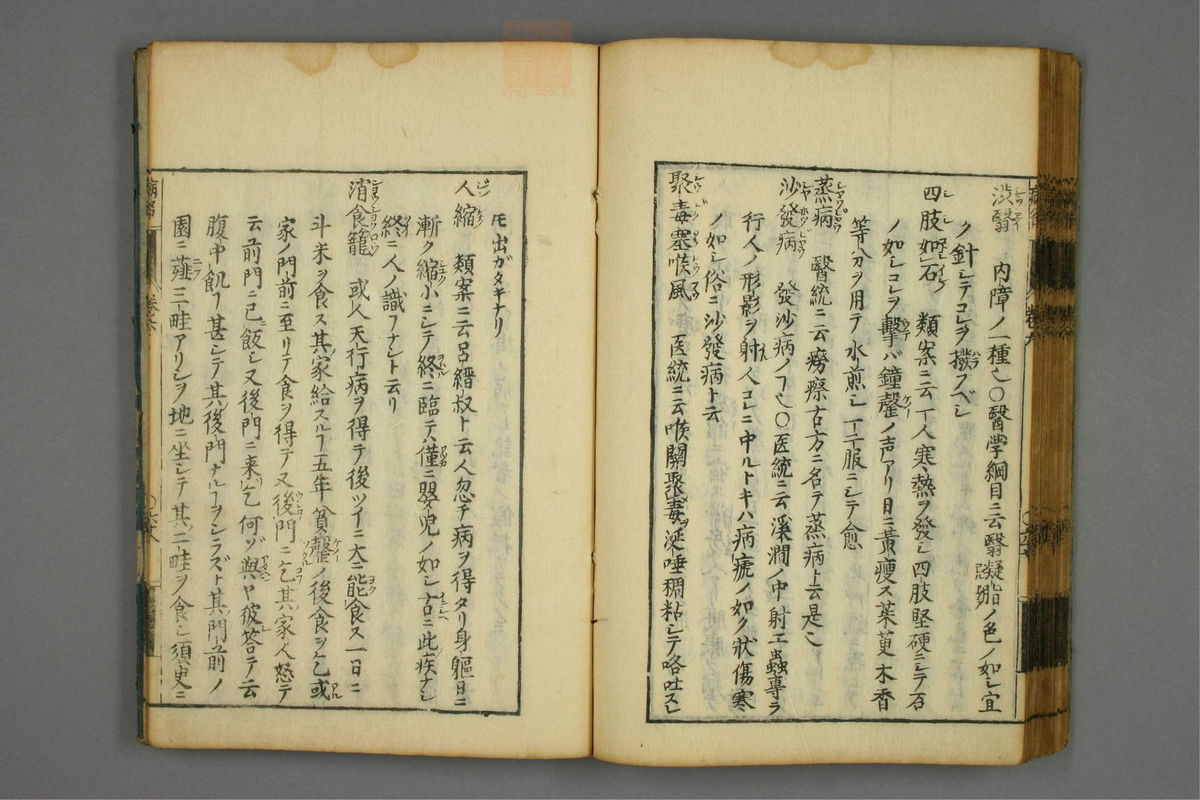 渋翳　内障ノ一種也○醫学綱目ニ云翳凝脂ノ色ノ如シ宜
ク針シテコレヲ撥フベシ
四肢如石　類案ニ云一人寒熱ヲ發シ四肢堅硬ニシテ石
ノ如シコレヲ擊バ鐘磬ノ声アリ日ニ黃瘦ス茱萸木香
等分ヲ用テ水煎シ一二服ニシテ愈
蒸病　醫統ニ云癆瘵古方ニ名テ蒸病ト云是也
沙發病　發沙病ノ也○医統ニ云溪澗ノ中射工蟲専ラ
行人ノ形影ヲ射人コレニ中ルトキハ病瘧ノ如ク狀傷寒
ノ如シ俗ニ沙發病ト云
聚毒塞喉風　医統ニ云喉關聚毒涎唾稠粘シテ咯吐スレ
モ出ガタキナリ
人縮　類案ニ云呂縉叔ト云人忽チ病ヲ得タリ身軀日ニ
漸ク縮小ニシテ終ニ臨テハ僅ニ嬰児ノ如シ古ニ此疾ナシ
終ニ人ノ識ナシト云リ
消食籠　或人天行病ヲ得テ後ツイニ大ニ能食ス一日ニ
斗米ヲ食ス其家給スル五年貧罄ノ後食ヲ乞或
家ノ門前ニ至リテ食ヲ得テ又後門ニ乞其家人怒テ
云前門ニ已飯シ又後門ニ来乞何ゾ與ヤ彼答テ云
腹中飢フ甚シテ其後門ナルヲシラズト其門前ノ
園ニ薤三畦アリシヲ地ニ坐シテ其二畦ヲ食シ須史ニ